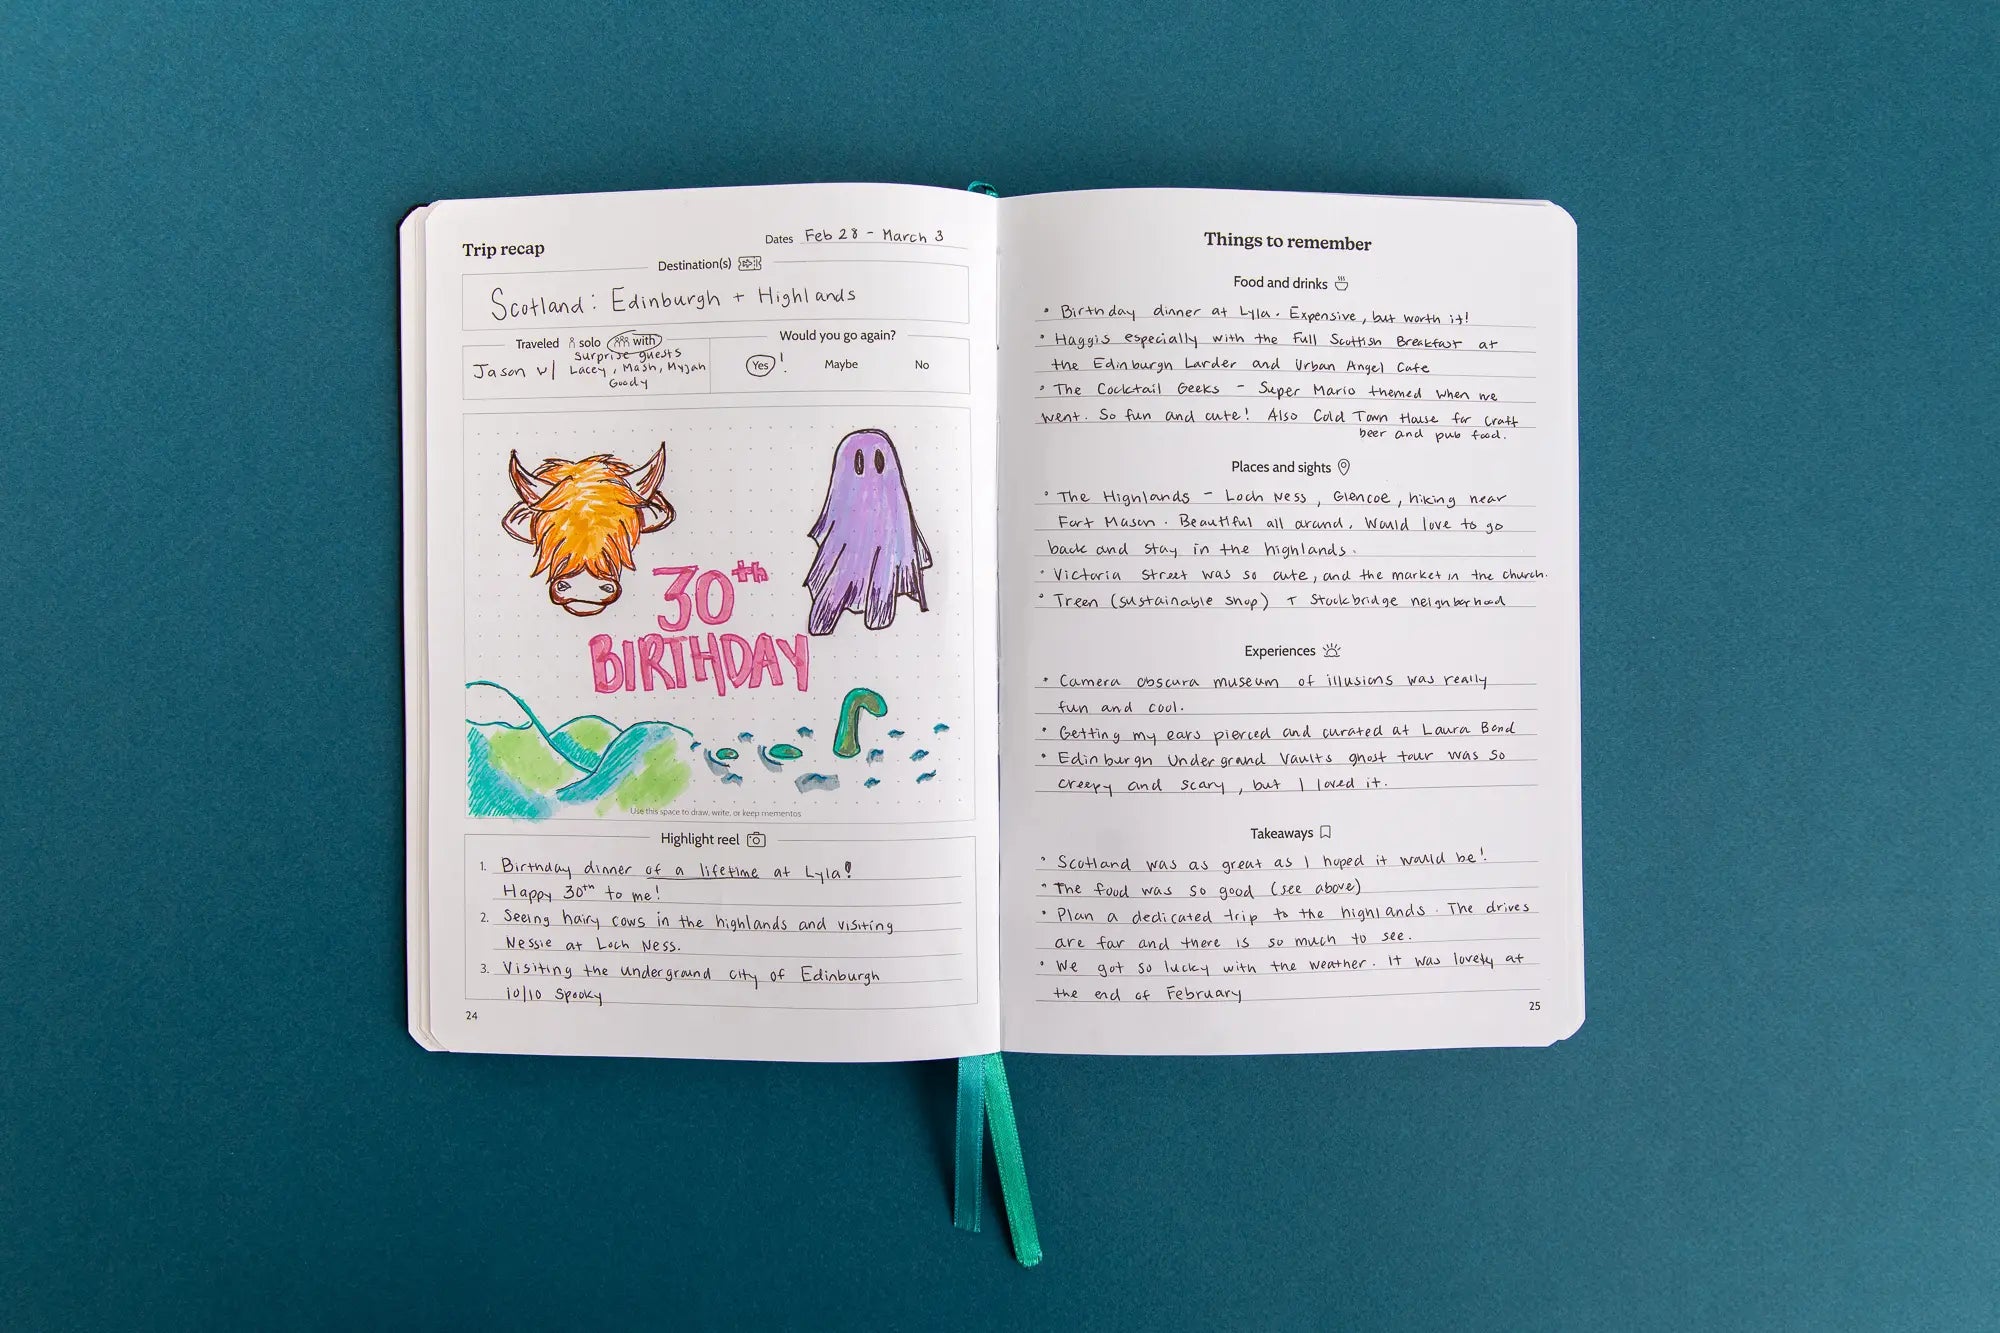 Trip recap
Dates Feb 28 - March 3
Destination(s)
Scotland: Edinburgh + Highlands
Traveled solo with
Would you go again?
Surprise guests
Jason w/ Lacey, Mash, Myjah
Goody
Yes! Maybe No
30th
BIRTHDAY
Use this space to draw, write, or keep mementos
Highlight reel
1. Birthday dinner of a lifetime at Lyla!
Happy 30th to me!
2. Seeing hairy cows in the highlands and visiting
Nessie at Loch Ness.
3. Visiting the underground city of Edinburgh
10/10 Spooky
24
Things to remember
Food and drinks
• Birthday dinner at Lyla. Expensive, but worth it!
• Haggis especially with the Full Scottish Breakfast at
the Edinburgh Larder and Urban Angel Cafe
• The Cocktail Geeks - Super Mario themed when we
went. So fun and cute! Also Cold Town House for craft
beer and pub food.
Places and sights
• The Highlands - Loch Ness, Glencoe, hiking near
Fort Mason. Beautiful all around. Would love to go
back and stay in the highlands.
• Victoria Street was so cute, and the market in the church.
• Treen (sustainable shop) + Stockbridge neighborhood
Experiences
• Camera obscura museum of illusions was really
fun and cool.
• Getting my ears pierced and curated at Laura Bond
• Edinburgh Underground Vaults ghost tour was so
creepy and scary, but I loved it.
Takeaways
• Scotland was as great as I hoped it would be!
• The food was so good (see above)
• Plan a dedicated trip to the highlands. The drives
are far and there is so much to see.
• We got so lucky with the weather. It was lovely at
the end of February
25